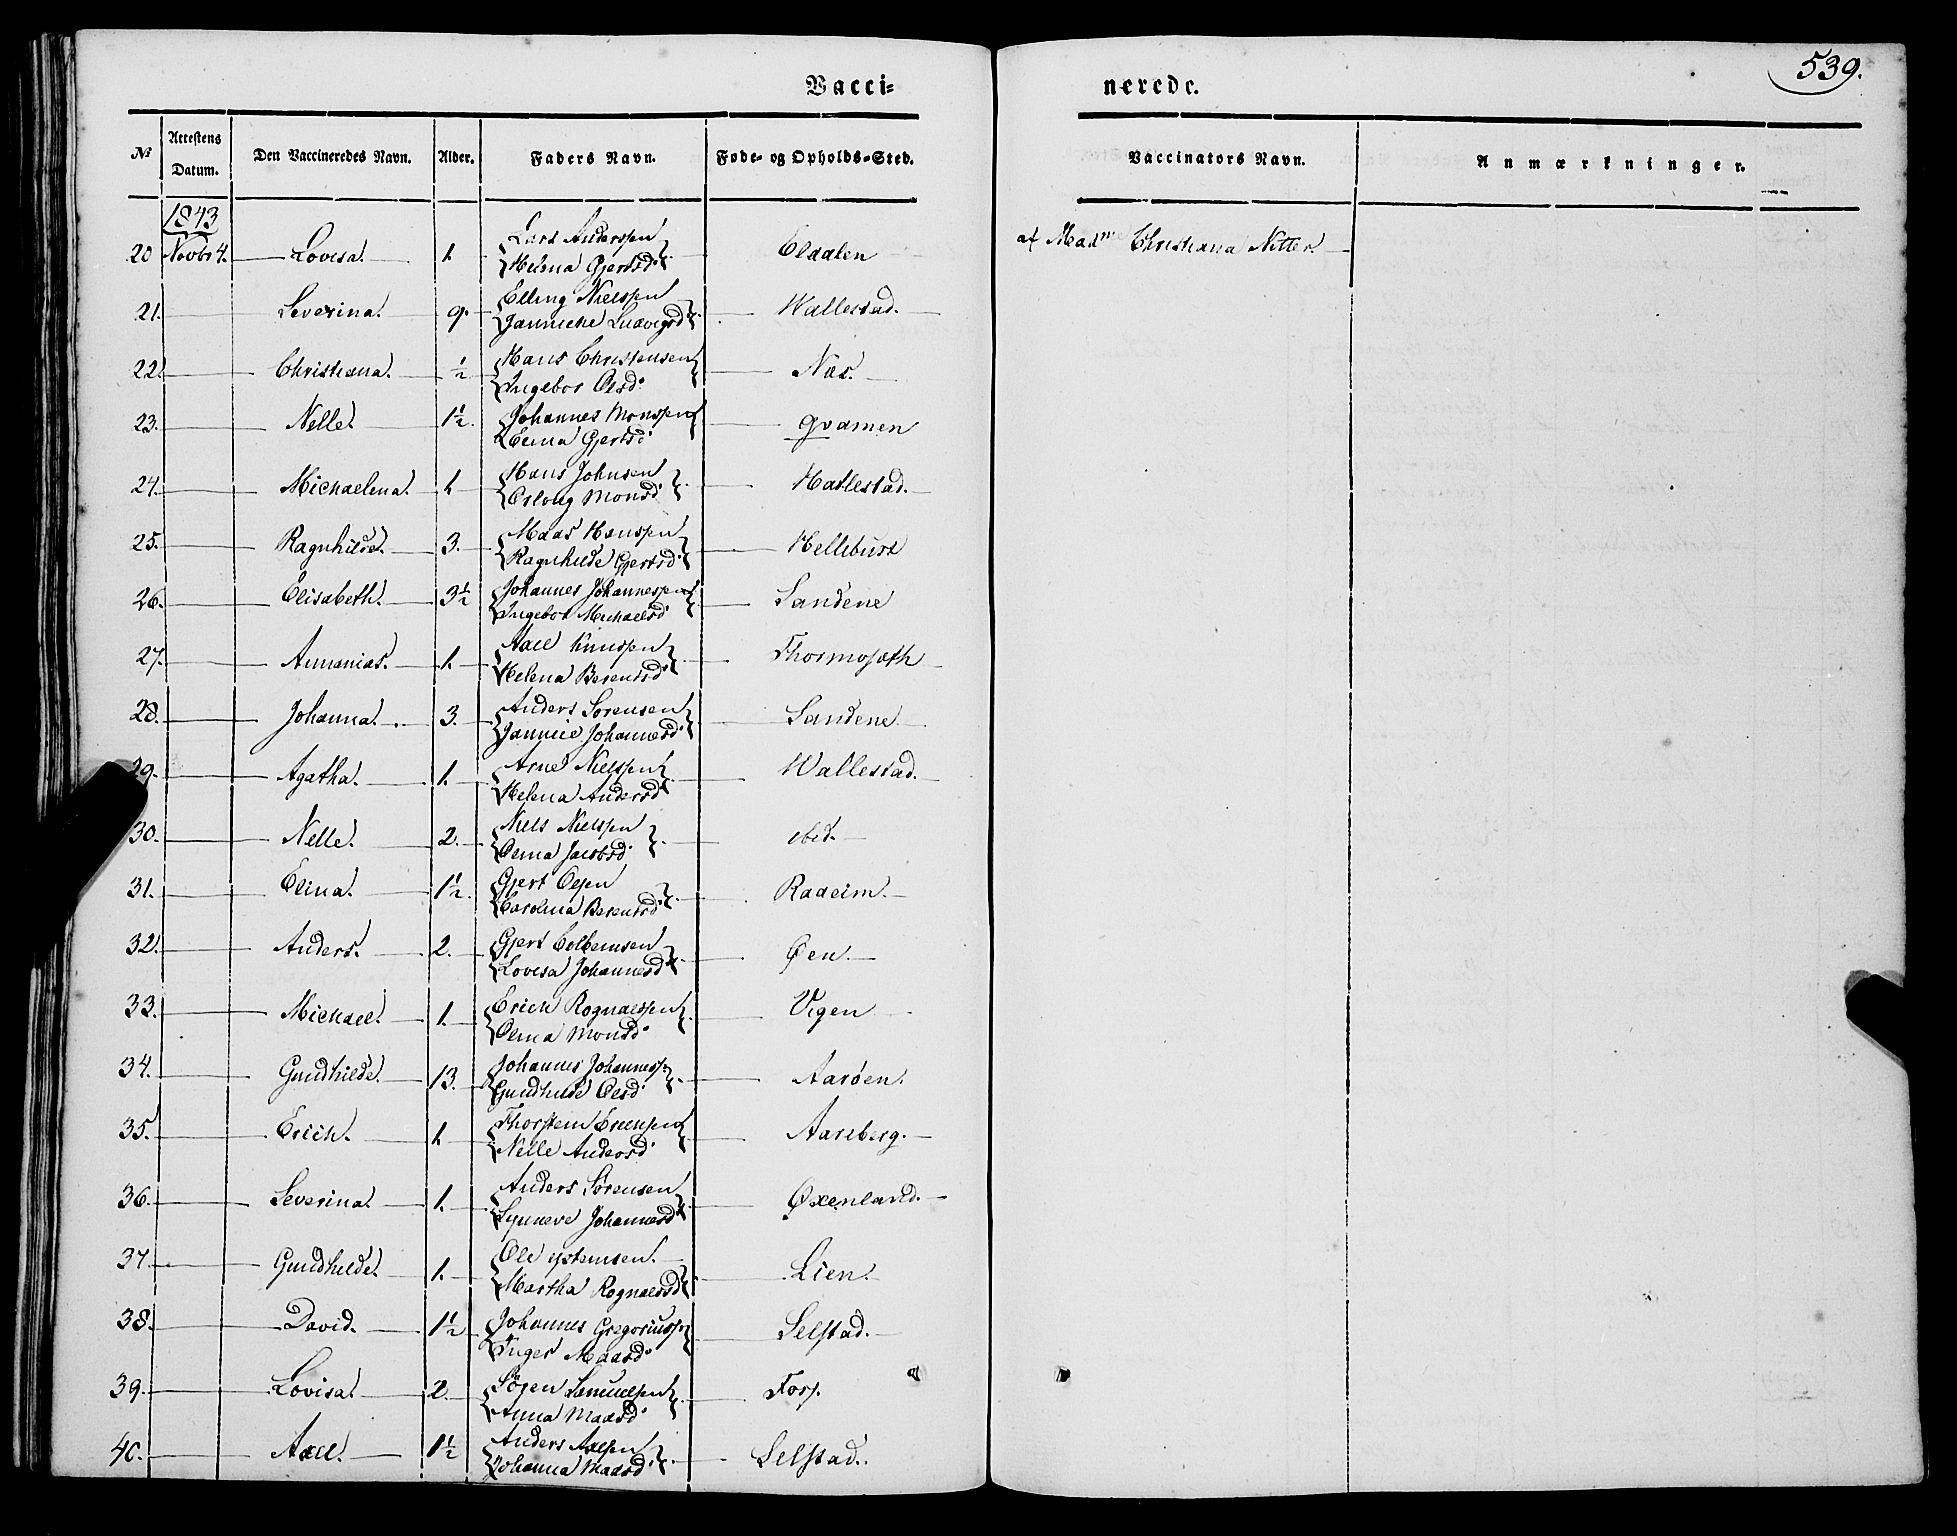 539.
Vacci= nerede.
No Attestens Datum. Den Vaccineredes Navn. Alder. Faders Navn. Føde- og Opholds-Sted. Vaccinators Navn. Anmærkninger.
1843
Lars Anderssen
20 Novbr 4. Lovisa. 1. Eldalen af Madme Christiana Nitter
Helena Gjertsd
Elling Nielssen
21. Severina. 9. Wallestad.
Jannicke Ludvigsd
Hans Christensen
22. Christiana. ½ Næs.
Ingebor Olesd
Johannes Monssen
23. Nelle. 1½ Qvamen
Gjertsd
Hans Johnsen
24. Michaelena. 1. Hatlestad.
Monsd
Mads Hanssen
25. Ragnhilde. 3. Hellebust
Ragnhilde Gjertsd
Johannes Johannessen
26. Elisabeth. 3½ Sandene
Ingebor Michaelsd
Axel
27. Annanias. 1. Thormoseth
Helena Berentsd
Anders Sørensen
28. Johanna. 3. Sandene
Johannesd
Arne Nielssen
29. Agatha. 1. Wallestad.
Helena Andersd
Niels Nielssen
30. Nelle. 2. ibid.
Olina Jacobsd
Gjert Olsen
31. Elina. 1½. Raaeim.
Carolina Berentsd
Gjert Colbeinsen
32. Anders. 2. Øen.
Lovisa Johannesd
Erich Rognalssen
33. Michael. 1. Vigen
Olina Monsd
Johannes Johanness.
34. Gundhilde. 13. Aarøen.
Gundhilde Olesd
Thorstein Ericksen
35. Erich. 1. Aareberg.
Nelle Andersd
Anders Sørensen
36. Severina. 1. Øxenland.
Synneve Johannesd
Ole Ysteinsen.
37. Gundhilde. 1. Lien.
Martha Rognaldsd
Johannes Gregoriuss.
38. David. 1½ Selstad.
Inger Madsd
Sören Samuelsen
39. Lovisa. 2. Fors.
Anna Madsd
Anders Axelsen
40. Axel. 1½ Selstad.
Johanna Madsd